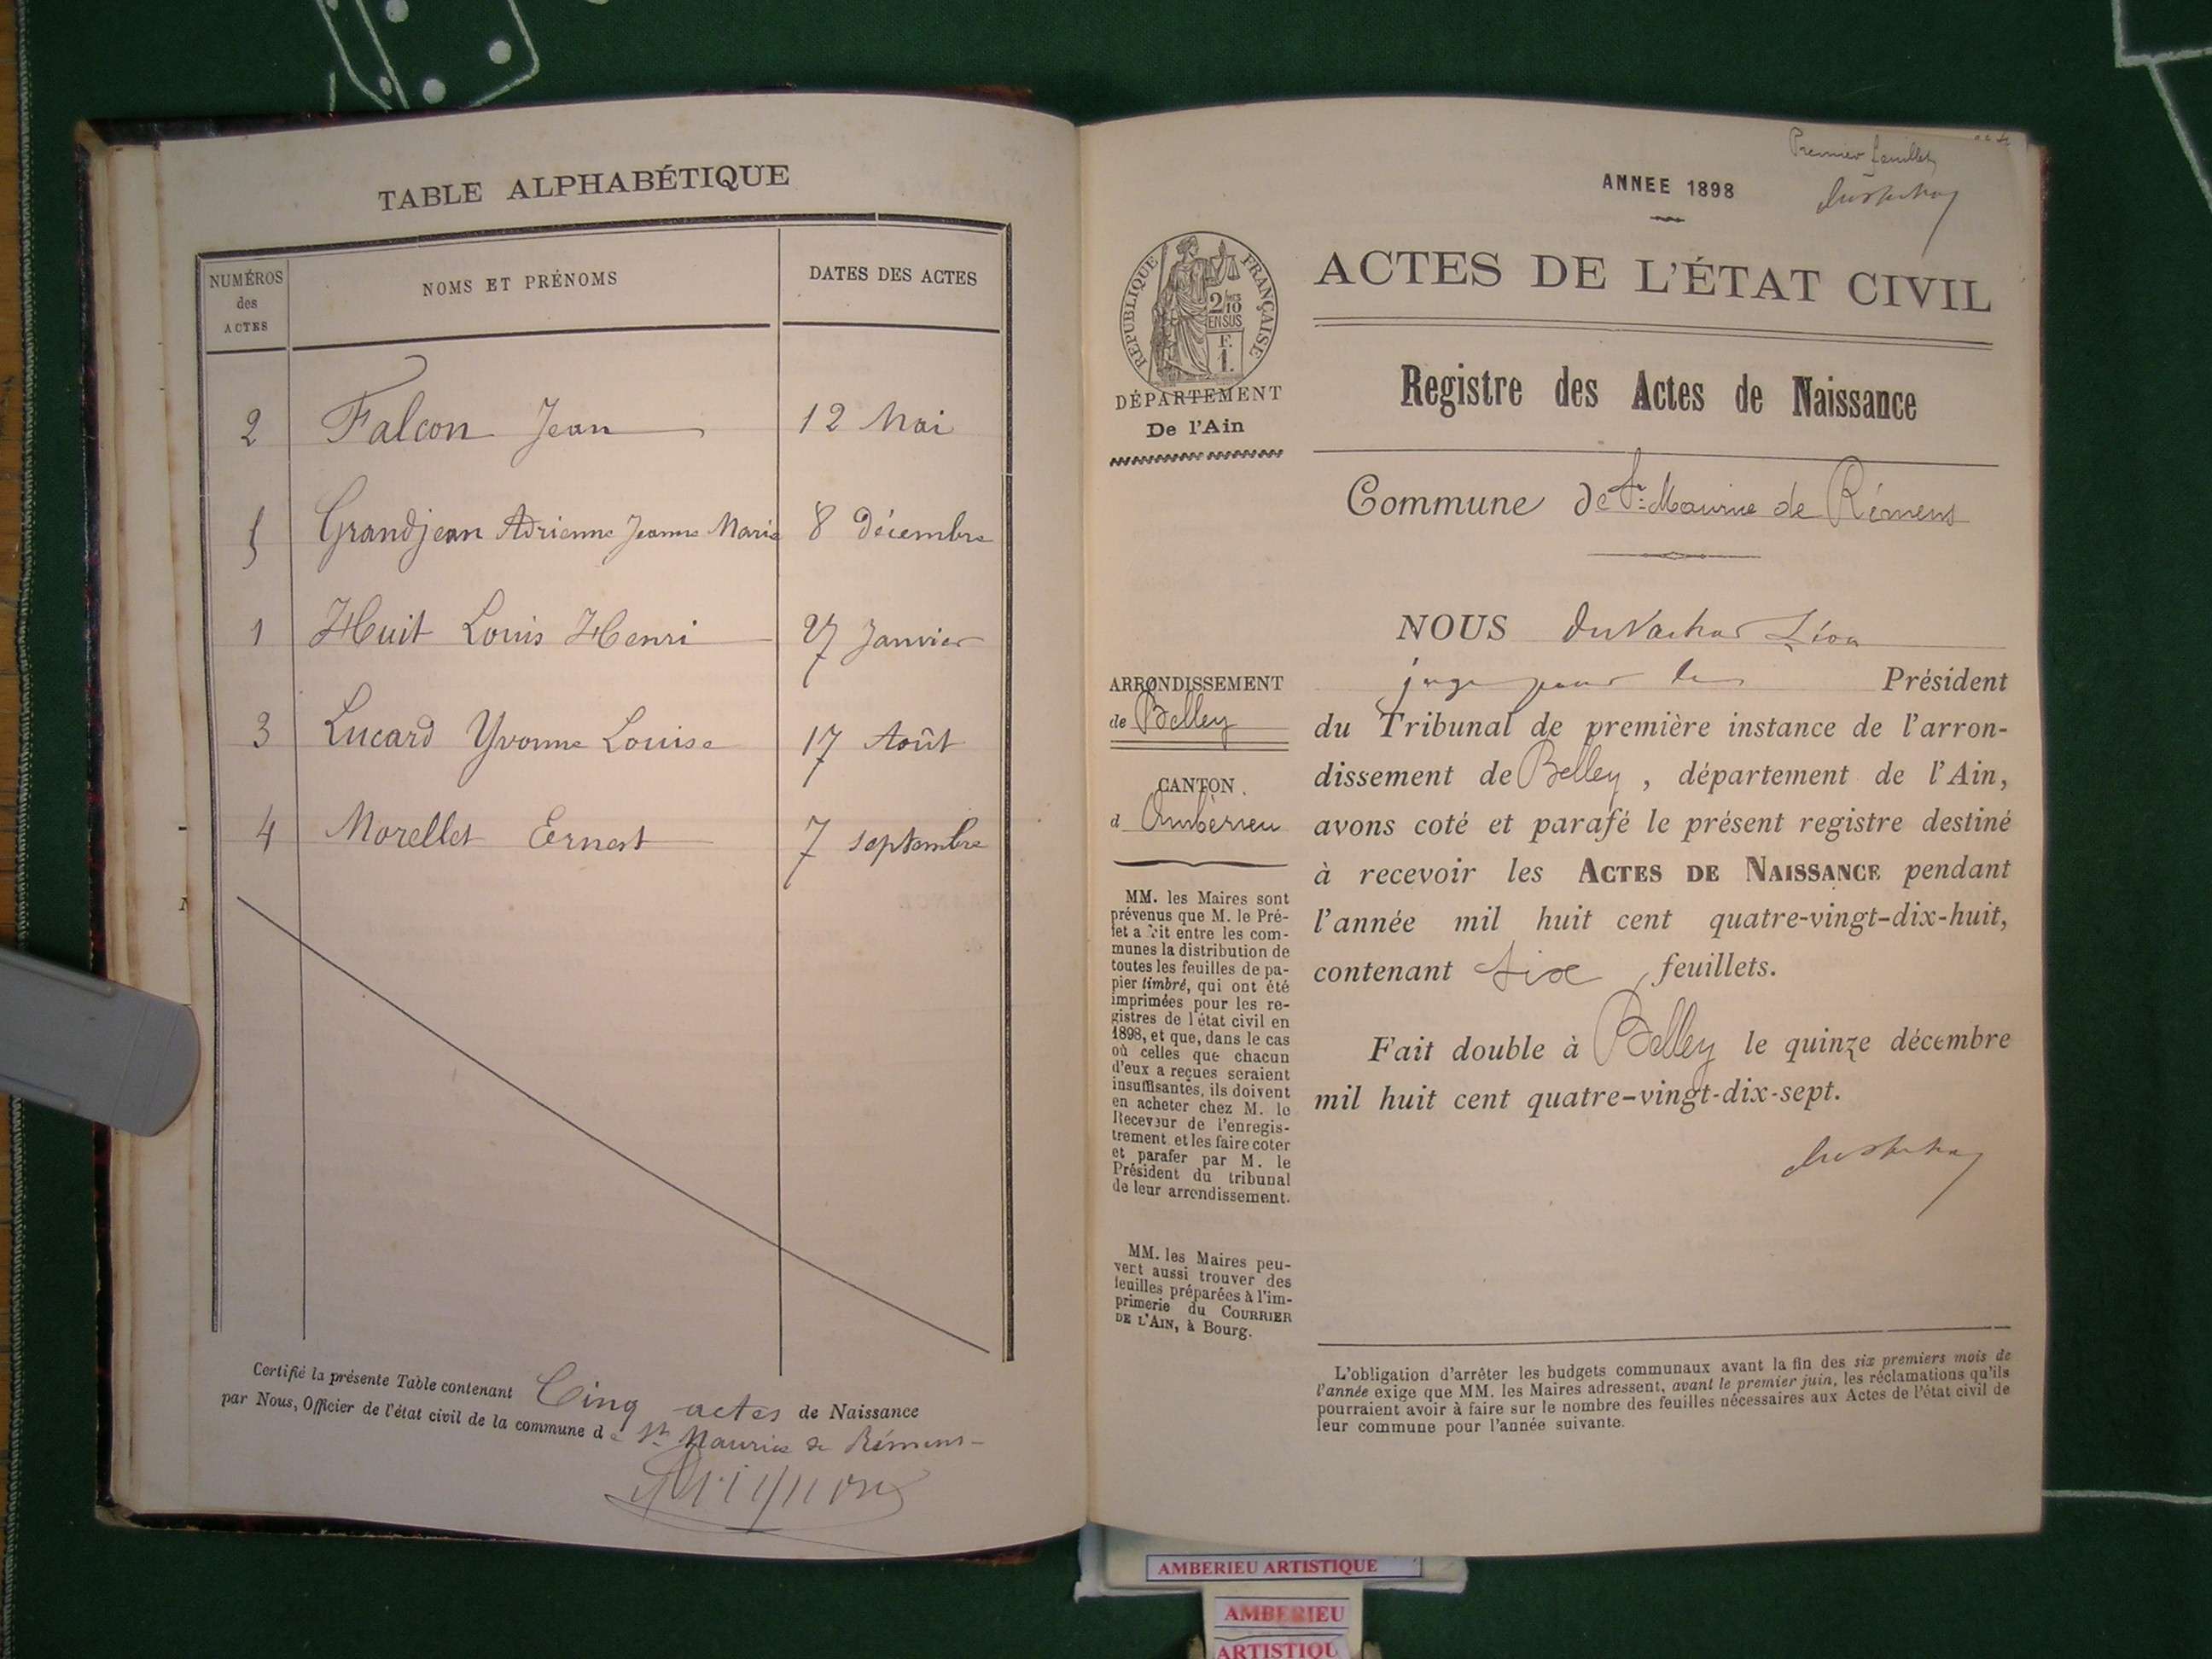 TABLE ALPHABÉTIQUE
NUMÉROS des ACTES
NOMS ET PRÉNOMS
DATES DES ACTES
2 Falcon Jean 12 Mai
5 Grandjean Adrienne Jeanne Marie 8 Décembre
1 Huit Louis Henri 27 Janvier
3 Lucard Yvonne Louise 17 Août
4 Morellet Ernest 7 septembre
Certifié la présente Table contenant Cinq actes de Naissance
par Nous, Officier de l'état civil de la commune de St Maurice de Rémens
Premier feuillet
ANNEE 1898
RÉPUBLIQUE FRANÇAISE
2/10
EN SUS
F.
1.
ACTES DE L'ÉTAT CIVIL
DÉPARTEMENT
De l'Ain
Registre des Actes de Naissance
Commune de St Maurice de Rémens
ARRONDISSEMENT
de Belley
CANTON
d Ambérieu
MM. les Maires sont
prévenus que M. le Pré-
fet a fait entre les com-
munes la distribution de
toutes les feuilles de pa-
pier timbré, qui ont été
imprimées pour les re-
gistres de l'état civil en
1898, et que, dans le cas
où celles que chacun
d'eux a reçues seraient
insuffisantes, ils doivent
en acheter chez M. le
Receveur de l'enregis-
trement et les faire coter
et parafer par M. le
Président du tribunal
de leur arrondissement.
MM. les Maires peu-
vent aussi trouver des
feuilles préparées à l'im-
primerie du COURRIER
DE L'AIN, à Bourg.
NOUS Léon
juge pour le Président
du Tribunal de première instance de l'arron-
dissement de Belley, département de l'Ain,
avons coté et parafé le présent registre destiné
à recevoir les ACTES DE NAISSANCE pendant
l'année mil huit cent quatre-vingt-dix-huit,
contenant six feuillets.
Fait double à Belley le quinze décembre
mil huit cent quatre-vingt-dix-sept.
L'obligation d'arrêter les budgets communaux avant la fin des six premiers mois de
l'année exige que MM. les Maires adressent, avant le premier juin, les réclamations qu'ils
pourraient avoir à faire sur le nombre des feuilles nécessaires aux Actes de l'état civil de
leur commune pour l'année suivante.
AMBERIEU ARTISTIQUE
AMBERIEU
ARTISTIQU